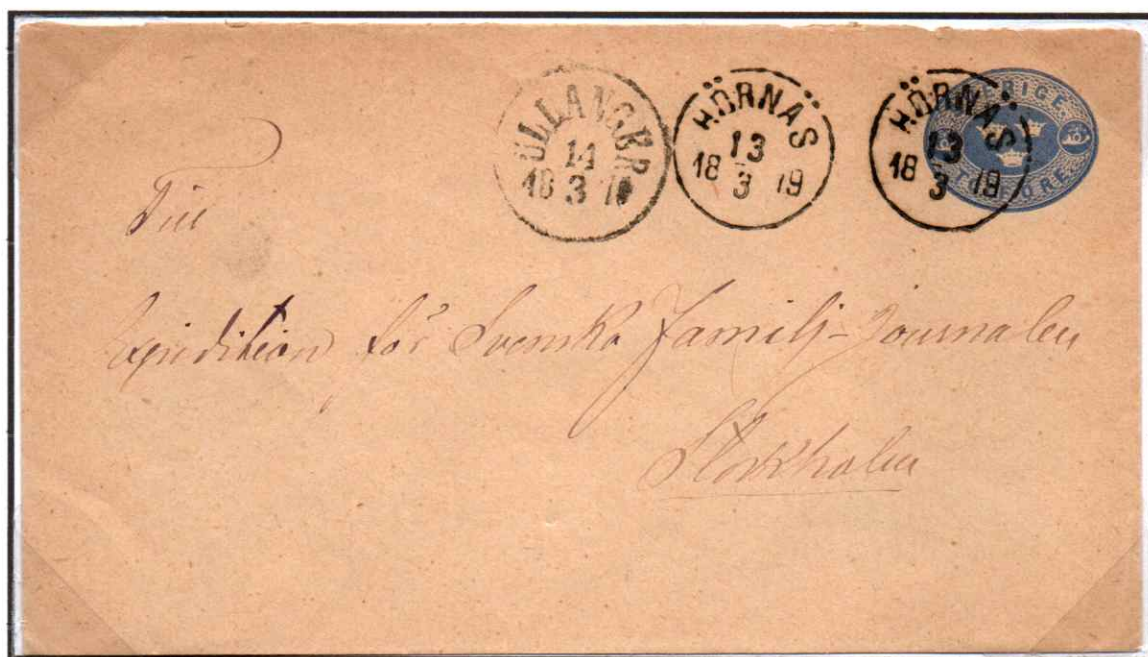 ULLANGER
14
18 3 79
HÖRNÄS
13
18 3 79
HÖRNÄS
13
18 3 79
SVERIGE
TOLF ÖRE
Till
Expedition för Svenska Familj-Journalen
Stockholm